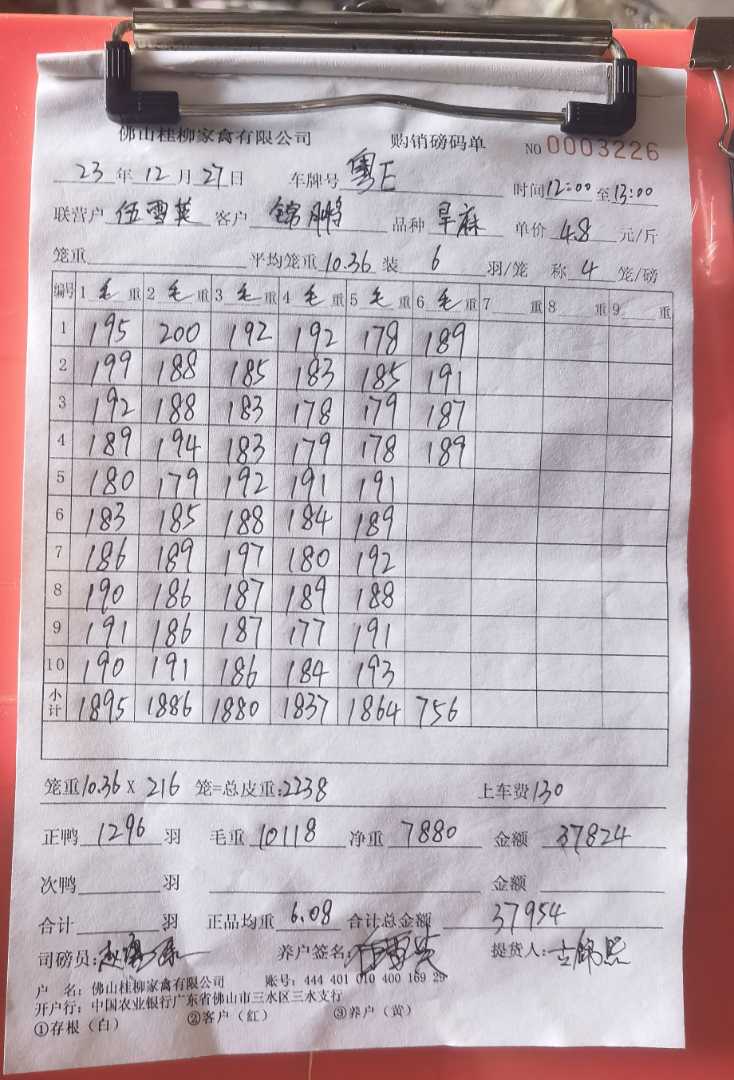 佛山桂柳家禽有限公司 购销磅码单 NO 0003226
23 年 12 月 27 日 车牌号 粤E 时间 12:00 至 13:00
联营户 伍雪英 客户 锦鹏 品种 旱麻 单价 4.8 元/斤
笼重 平均笼重 10.36 装 6 羽/笼 称 4 笼/磅
编号 1 毛 重 2 毛 重 3 毛 重 4 毛 重 5 毛 重 6 毛 重 7 重 8 重 9 重
1 195 200 192 192 178 189
2 199 188 185 183 185 191
3 192 188 183 178 179 187
4 189 194 183 179 178 189
5 180 179 192 191 191
6 183 185 188 184 189
7 186 189 197 180 192
8 190 186 187 189 188
9 191 186 187 177 191
10 190 191 186 184 193
小计 1895 1886 1880 1837 1864 756
笼重 10.36 X 216 笼=总皮重: 2238 上车费 130
正鸭 1296 羽 毛重 10118 净重 7880 金额 37824
次鸭 羽 金额
合计 羽 正品均重 6.08 合计总金额 37954
司磅员: 养户签名: 提货人:
户 名: 佛山桂柳家禽有限公司 账号: 444 401 010 400 169 29
开户行: 中国农业银行广东省佛山市三水区三水支行
①存根(白) ②客户(红) ③养户(黄)